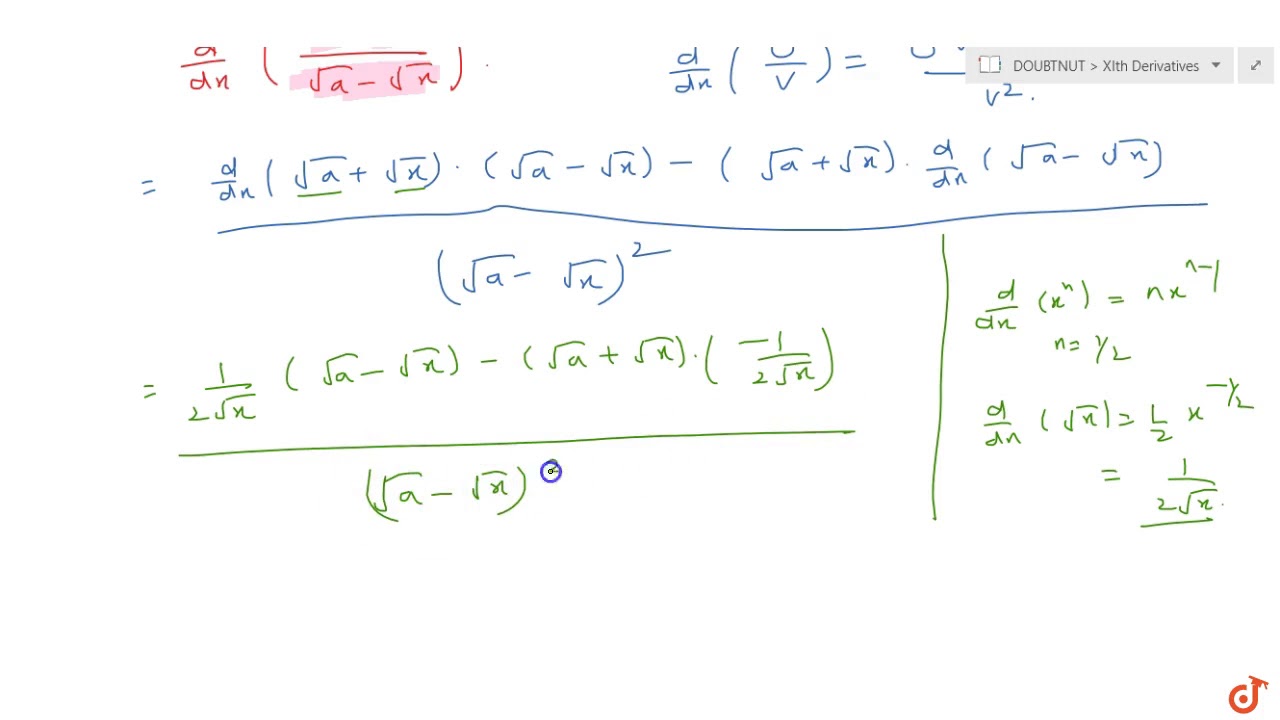 d/dx ( ——— / √a − √x ) .
d/dx ( U/V ) = ——— / V² .
DOUBTNUT > XIth Derivatives
= d/dx ( √a + √x ) · ( √a − √x ) − ( √a + √x ) · d/dx ( √a − √x )
( √a − √x )²
= 1/2√x ( √a − √x ) − ( √a + √x ) · ( −1/2√x )
( √a − √x )
d/dx (xⁿ) = nxⁿ⁻¹
n = 1/2
d/dx ( √x ) = 1/2 x^−1/2
= 1/2√x .